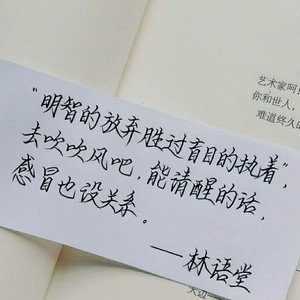 艺术家呵!
你和世人,
难道终久
"明智的放弃胜过盲目的执着",
去吹吹风吧,能清醒的话,
感冒也没关系。
——林语堂